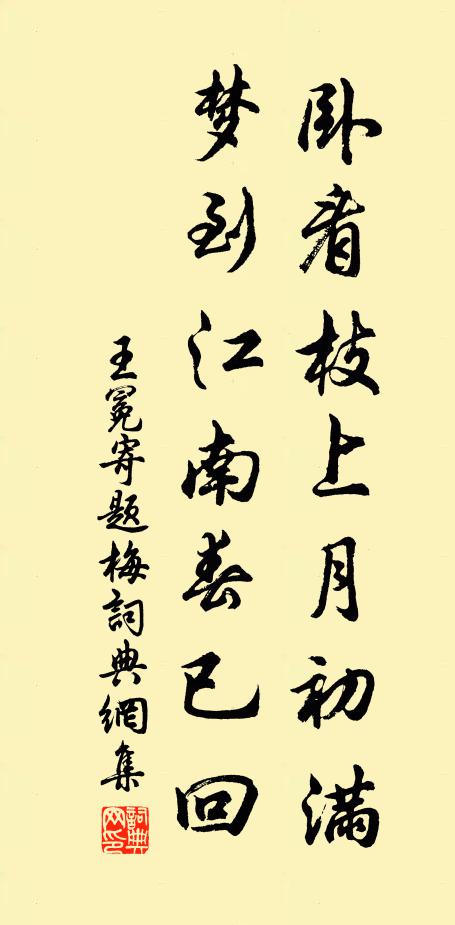 卧看枝上月初满
梦到江南春已回
王冕寄题梅詞典網集
詞典网印